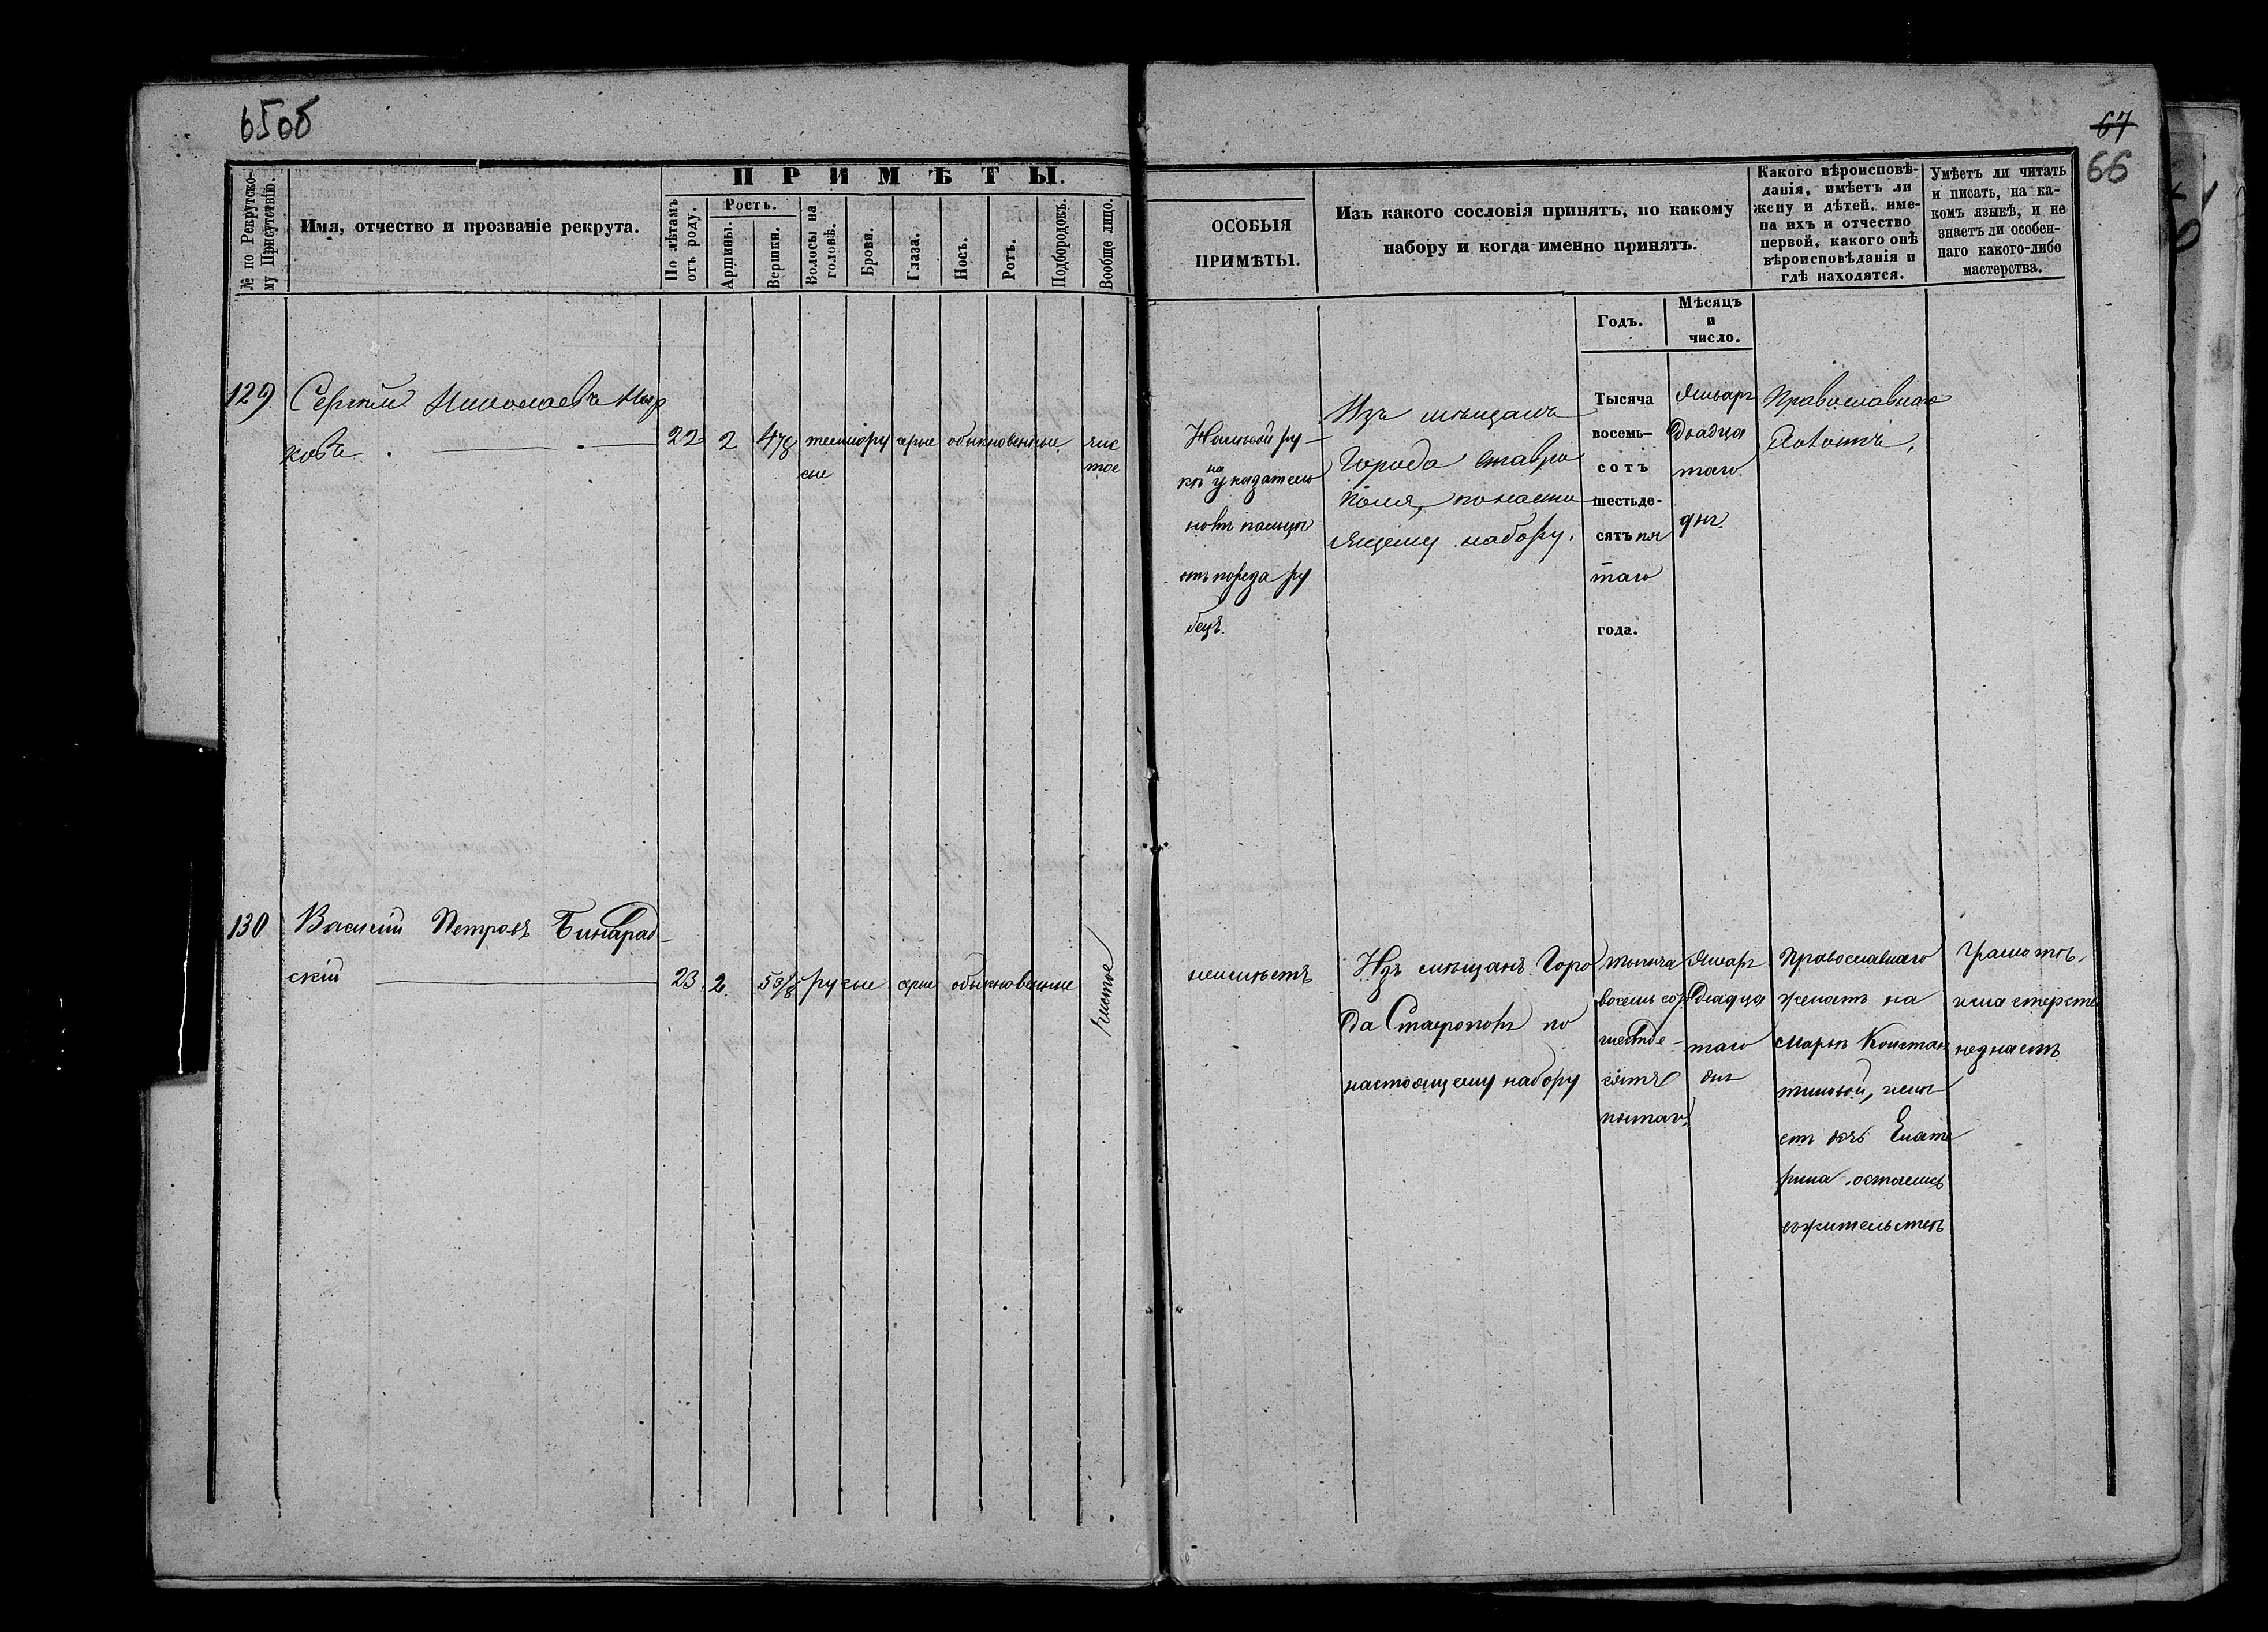 65об
67
66
№ по Рекрутско-
му Присутствію.
Имя, отчество и прозваніе рекрута.
ПРИМѢТЫ.
По лѣтамъ
отъ роду.
Ростъ.
Аршины.
Вершки.
Волосы на
головѣ.
Брови.
Глаза.
Носъ.
Ротъ.
Подбородокъ.
Вообще лицо.
ОСОБЫЯ
ПРИМѢТЫ.
Изъ какого сословія принятъ, по какому
набору и когда именно принятъ.
Какого вѣроисповѣ-
данія, имѣетъ ли
жену и дѣтей, име-
на ихъ и отчество
первой, какого онѣ
вѣроисповѣданія и
гдѣ находятся.
Умѣетъ ли читать
и писать, на ка-
комъ языкѣ, и не
знаетъ ли особен-
наго какого-либо
мастерства.
Годъ.
Мѣсяцъ
и
число.
129
Сергѣй Николаевъ
ковъ
22 2 4 7/8 темнору
сые
серые обыкновенные
чис
тое
На лѣвой ру-
кѣ на указатель
номъ пальцѣ
отъ пореза ру
бецъ.
Изъ мѣщанъ
Города Ставро
поля, по насто
ящему набору.
Тысяча
восемь-
сотъ
шестьде-
сятъ пя
таго
года.
Январь
двадца
таго
дня.
Православнаго
холостъ,
130
Василій Петровъ Бинарад-
скій
23. 2. 5 3/8 русые серые обыкновенные
чистое
неимѣетъ
Изъ мѣщанъ Горо
да Ставрополя по
настоящему набору
тысяча
восемьсот
шестьде-
сятъ
пятаго
Январь
двадца
таго
дня
Православнаго
женатъ на
Марьѣ Констан
тиновой, имѣ
етъ дочь Екате
рина остались
въ жительствѣ
Грамотѣ,
и мастерства
незнаетъ